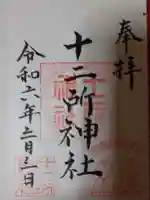 奉拝
十二所神社
令和六年二月三日